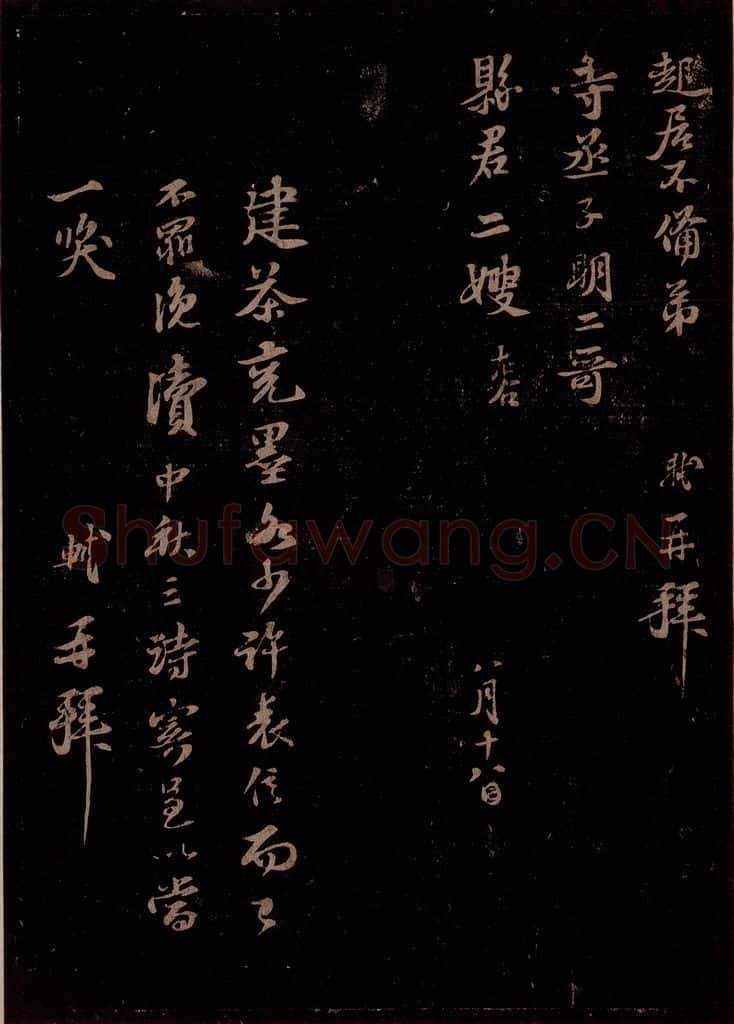 起居不備弟 軾再拜
寺丞子明二哥
縣君二嫂 八月十八日
建茶兖墨各少許表信而已
不罪浼瀆中秋三詩寄呈以當
一咲 軾再拜
Shufawang.CN